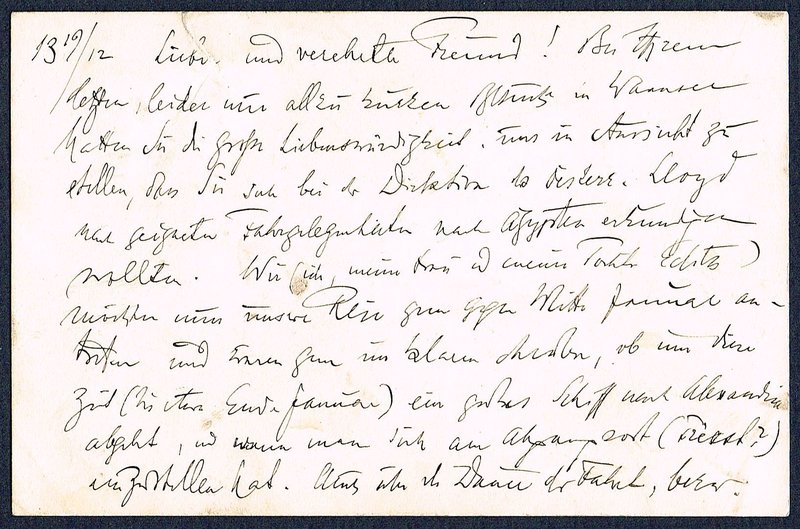 13 19/12 Lieber und verehrter Freund! Bei Ihrem
letzten, leider nur allzu kurzen Besuche in Wannsee
hatten Sie die große Liebenswürdigkeit, uns in Aussicht zu
stellen, dass Sie sich bei der Direktion des österr. Lloyd
nach geigneten Fahrgelegenheiten nach Ägypten erkundigen
wollten. Wir (ich, meine Frau und meine Tochter)
möchten nun unsere Reise gern gegen Mitte Januar an-
treten und wären gern im klaren darüber, ob um diese
Zeit (bis etwa Ende Januar) ein gutes Schiff nach Alexandria
abgeht, und wann man sich am Abgangsort (Triest?)
einzustellen hat. Auch über die Dauer der Fahrt, bezw.